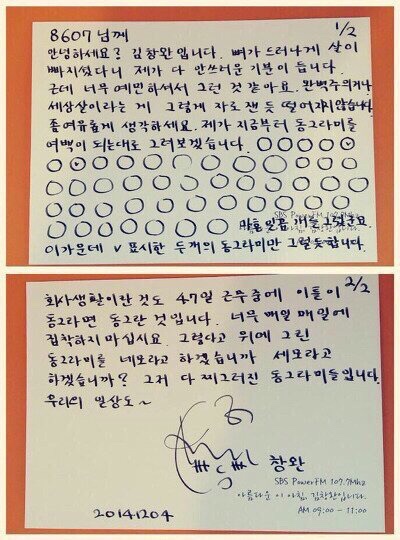 8607님께 1/2
안녕하세요? 김창완입니다. 뼈가 드러나게 살이
빠지셨다니 제가 다 안쓰러운 기분이 듭니다.
근데 너무 예민하셔서 그런 것 같아요. 완벽주의거나
세상살이라는 게 그렇게 자로 잰 듯 떨어지지않습니다
좀여유롭게 생각하세요. 제가 지금부터 동그라미를
여백이 되는대로 그려보겠습니다.
SBS PowerFM 107.7Mhz
마흔일곱 개를 그렸군요.
이가운데 v 표시한 두개의 동그라미만 그럴듯합니다.
회사생활이란것도 47일 근무중에 이틀이 2/2
동그라면 동그란 것입니다. 너무 매일 매일에
집착하지 마십시요. 그렇다고 위에 그린
동그라미를 네모라고 하겠습니까 세모라고
하겠습니까? 그저 다 찌그러진 동그라미들입니다.
우리의 일상도~
창완
SBS PowerFM 107.7Mhz
아름다운 이 아침, 김창완입니다.
AM 09:00 - 11:00
20141204